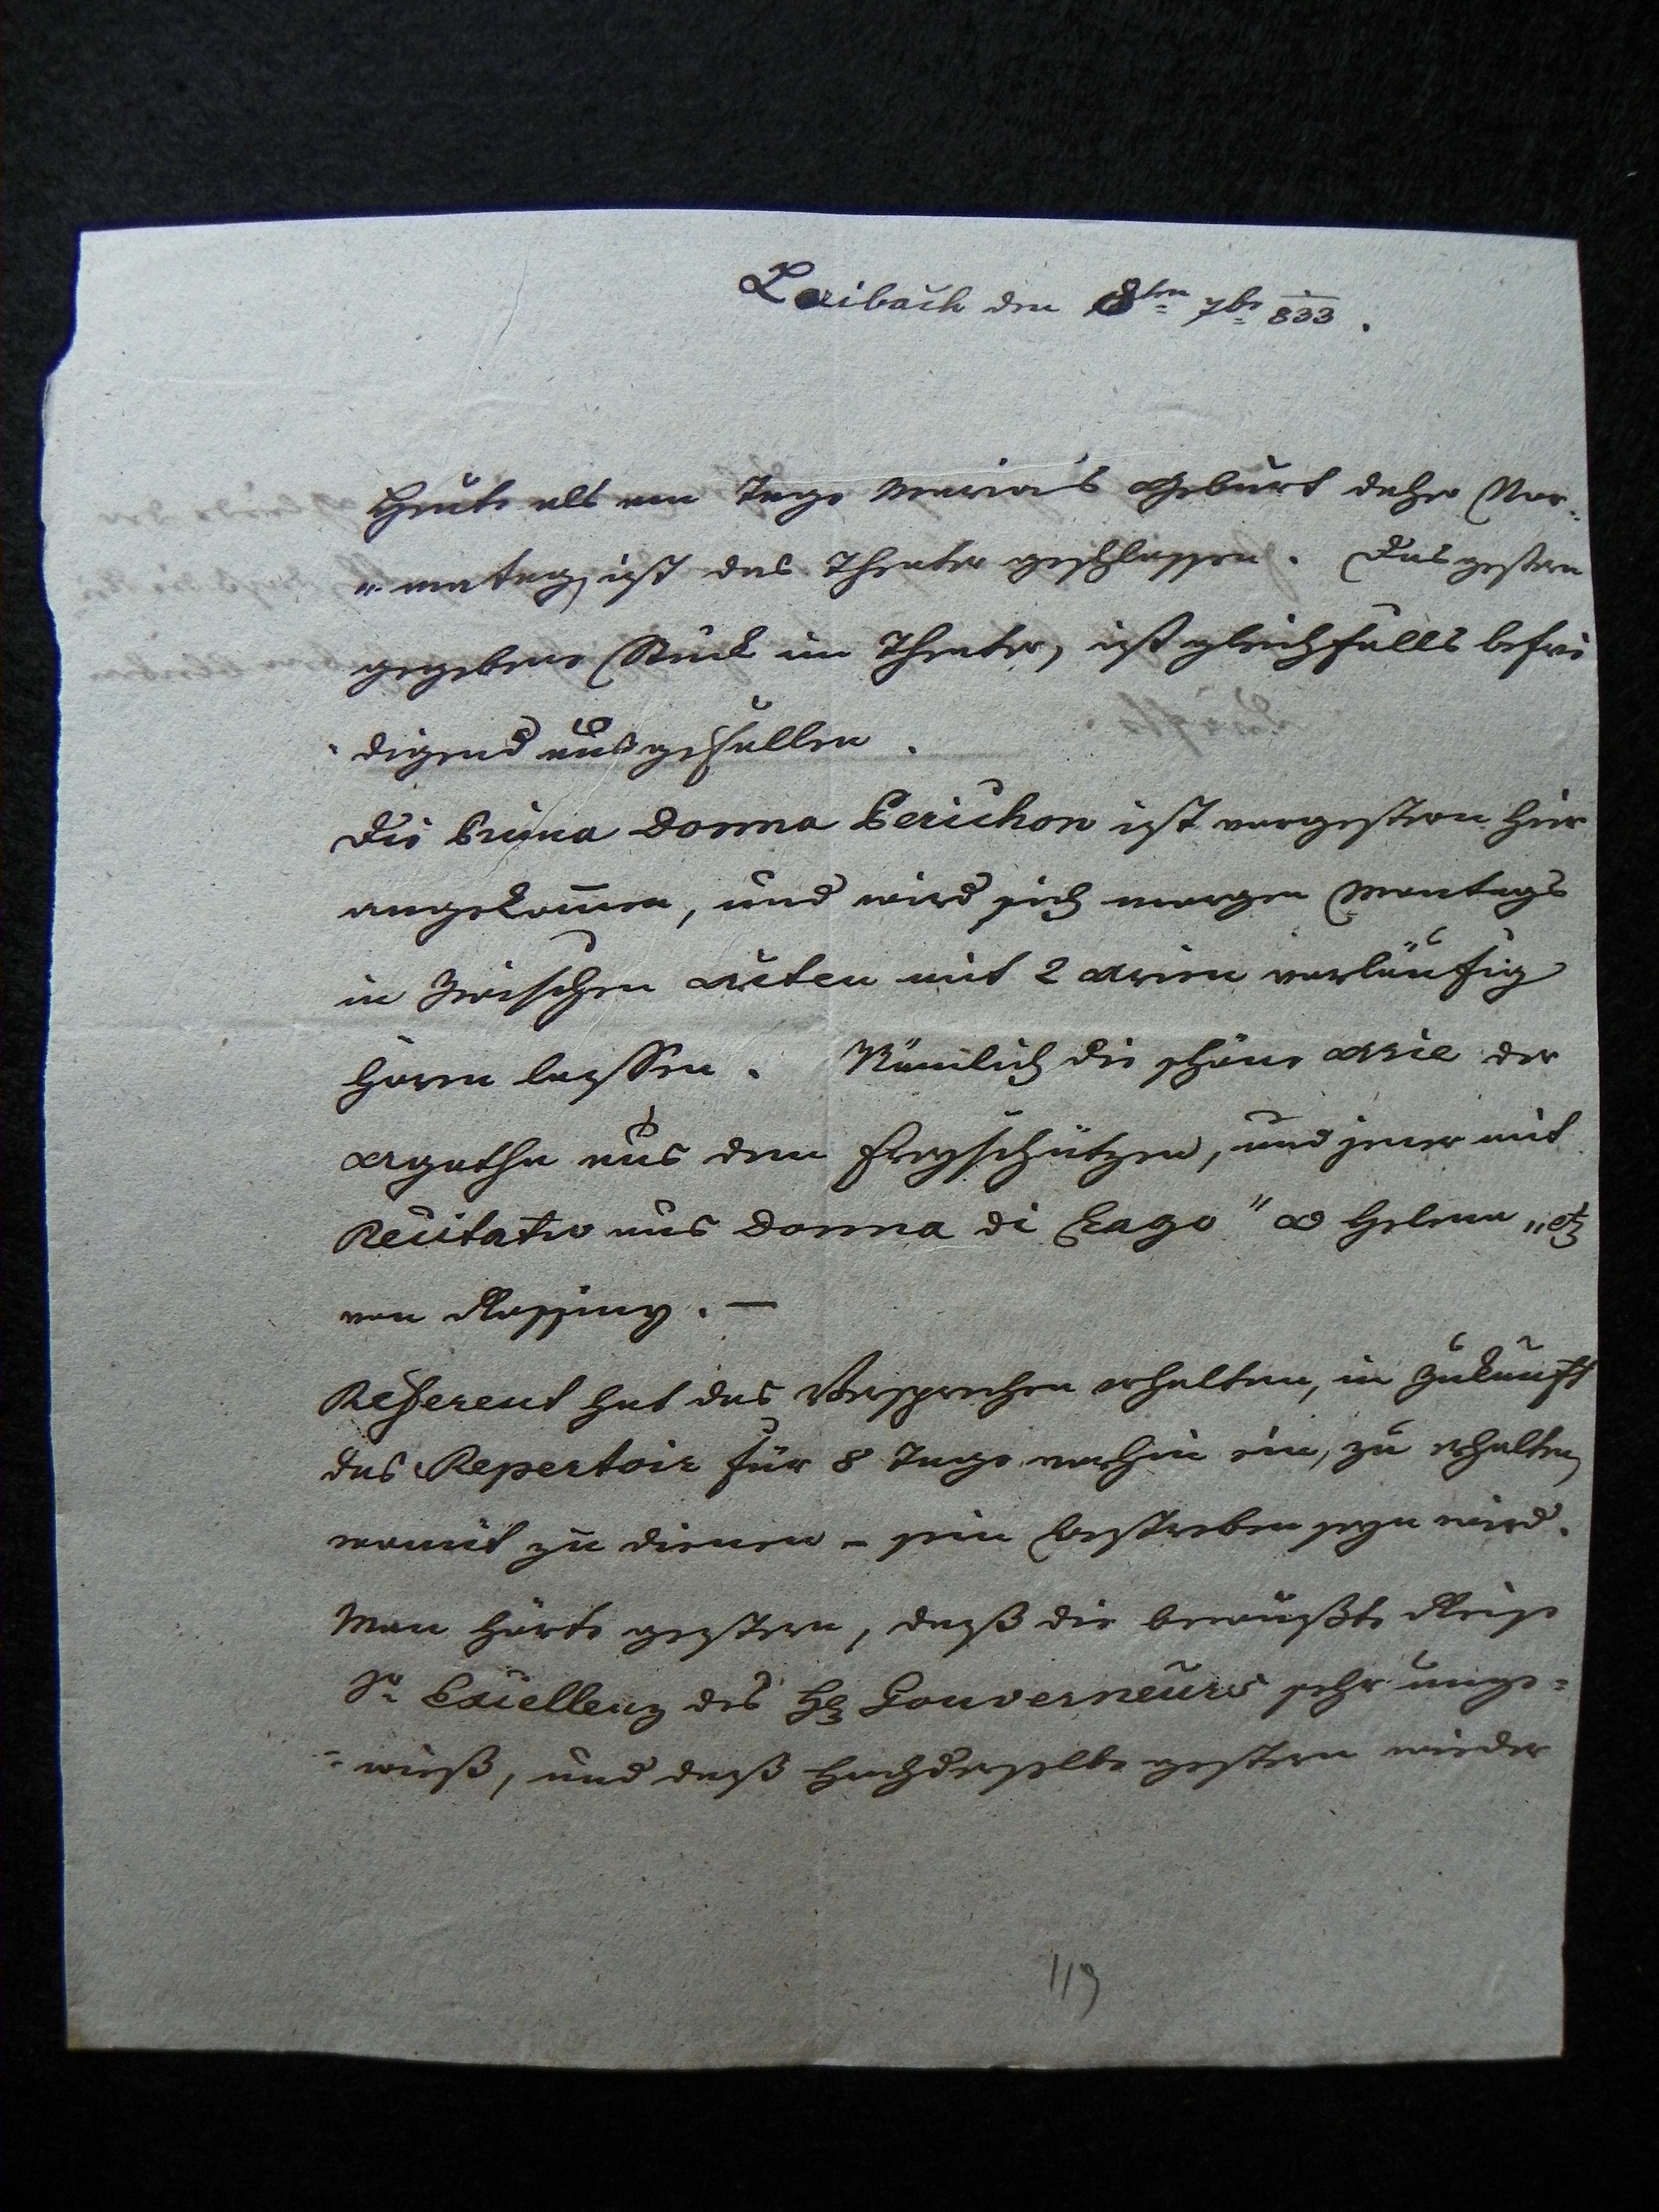 Laibach den 8ten 7br 833.
Heute als am Tage Mariä's Geburt daher Nor=
"matag, ist das Theater geschlossen. Das gestern
gegebene Stück im Theater, ist gleichfalls befrie
digend ausgefallen.
Die Prima Donna Perichon ist vorgestern hier
angekom̄en, und wird sich morgen Montags
in Zwischen Acten mit 2 Arien vorläufig
hören lassen. Nämlich die schöne Arie der
Agatha aus dem Freyschützen, und jener mit
Recitativ aus Donna di Lago" O Helena „etz
von Rossiny. —
Referent hat das Versprechen erhalten, in Zukunft
das Repertoir für 8 Tage vorhin ein, zu erhalten,
womit zu dienen - sein Bestreben seyn wird.
Man hörte gestern, daß die bewußte Reise
Sr Excellenz des H Gouverneurs sehr unge=
=wieß, und daß Hochderselbe gestern wieder
119